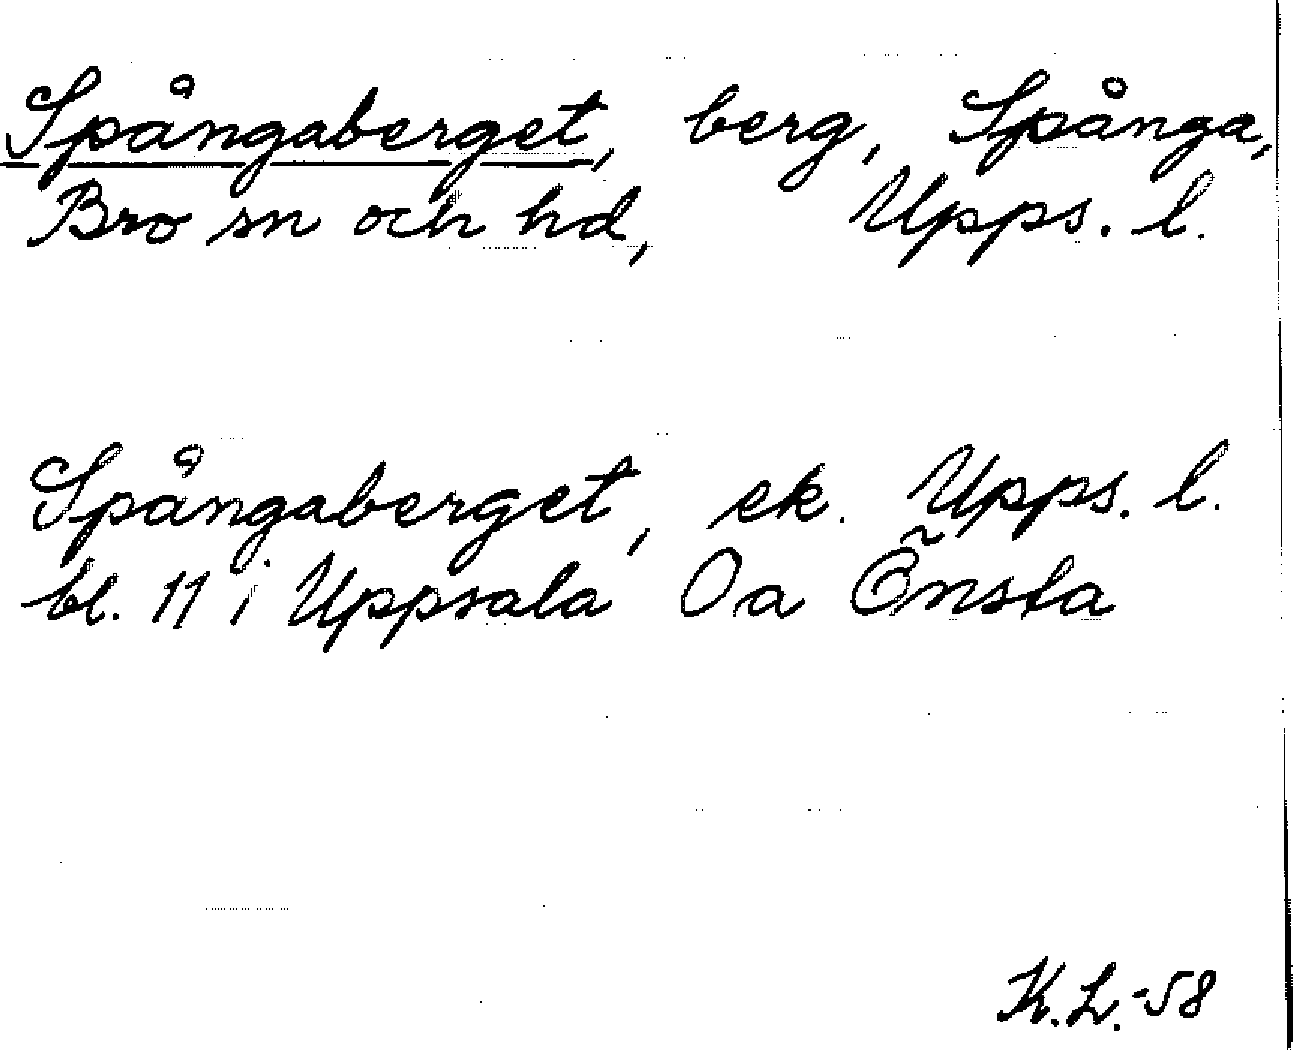 Spångaberget, berg, Spånga,
Bro sn och hd, Upps. l.
Spångaberget, ek. Upps. l.
bl. 11 i Uppsala Oa Önsta
K.L.-58